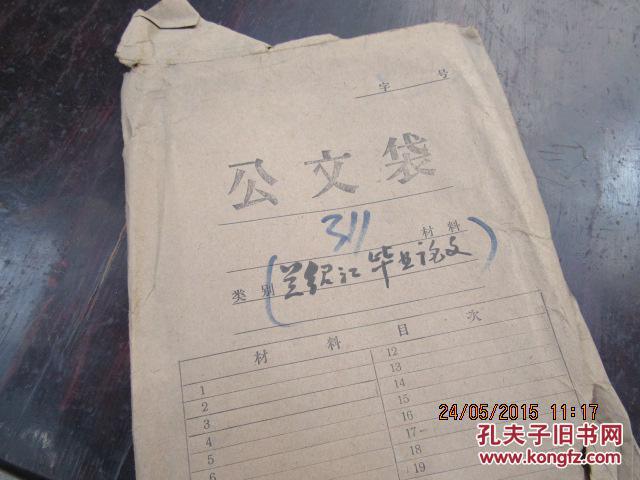 字 号
公文袋
311
材料
类别(兰绍江毕业论文)
材料目次
1
2
3
4
5
6
12
13
14
15
16
17
18
19
24/05/2015 11:17
孔夫子旧书网
www.kongfz.com